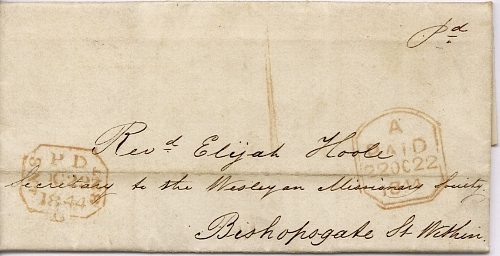 pd
Revd Elijah Hoole
Secretary to the Wesleyan Missionary Society
Bishopsgate St Within.
P D
1844
L
A
PAID
22 OC 22